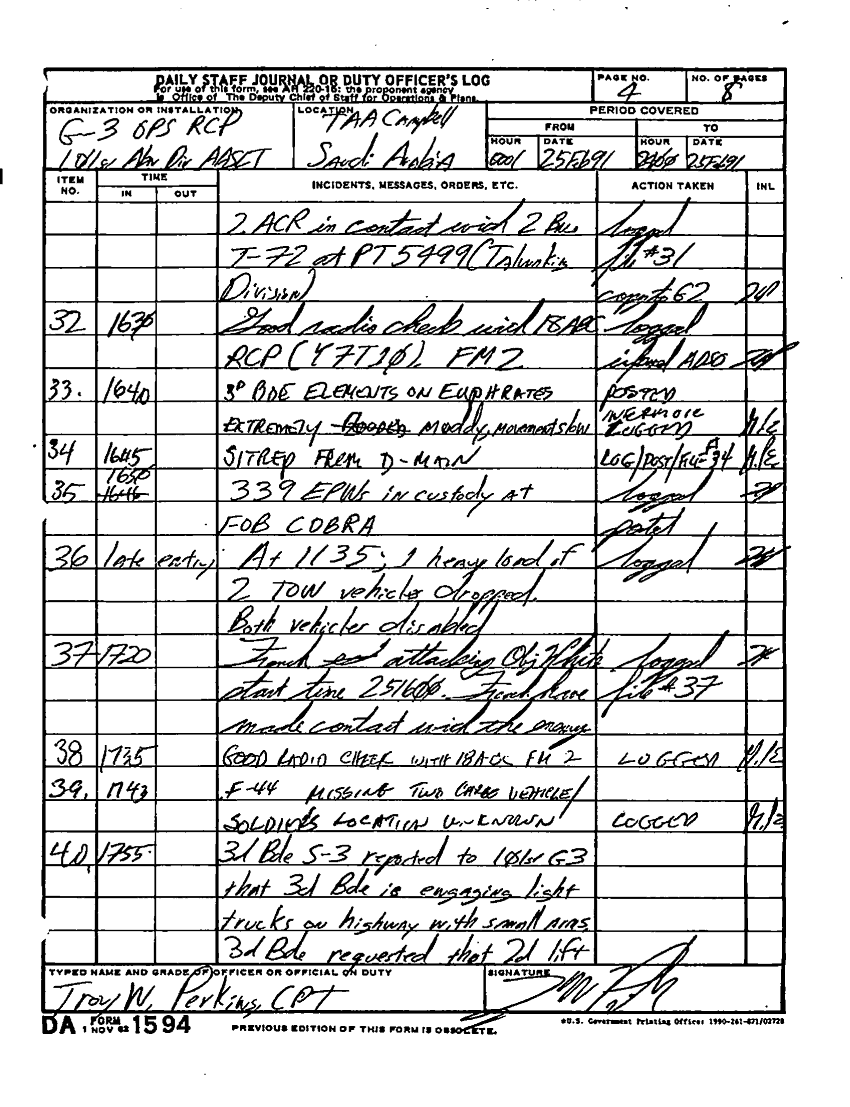 DAILY STAFF JOURNAL OR DUTY OFFICER'S LOG
For use of this form, see AR 220-15; the proponent agency
is Office of The Deputy Chief of Staff for Operations & Plans.
PAGE NO.
4
NO. OF PAGES
8
ORGANIZATION OR INSTALLATION
G-3 OPS RCP
101st Abn Div AASLT
LOCATION
TAA Campbell
Saudi Arabia
PERIOD COVERED
FROM
TO
HOUR
0001
DATE
25Feb91
HOUR
2400
DATE
25Feb91
ITEM NO.
TIME
IN
OUT
INCIDENTS, MESSAGES, ORDERS, ETC.
ACTION TAKEN
INL
2 ACR in contact with 2 Bns logged
T-72 at PT5499 file #31
Division) copy to G2
32 1630 Good radio check with 18 ABC logged
RCP (Y7T10). FM2 informed
33. 1640 3D BDE ELEMENTS ON EUPHRATES POSTED
EXTREMELY Muddy, Movement slow LOGGED
34 1645 SITREP FROM D-MAIN LOG/POST/FILE 34
1650
35 1646 339 EPWs in custody at logged
FOB COBRA posted
36 late entry At 1135; 1 heavy load of logged
2 TOW vehicles dropped.
Both vehicles disabled
37 1720 French attacking Obj White logged
start time 251600. French have file #37
made contact with the enemy
38 1735 GOOD RADIO CHECK WITH 18ABC FM 2 LOGGED
39. 1743 F-44 MISSING TWO VEHICLE/
SOLDIERS LOCATION UNKNOWN LOGGED
40. 1755 3d Bde S-3 reported to 101st G3
that 3d Bde is engaging light
trucks on highway with small arms.
3d Bde requested that 2d lift
TYPED NAME AND GRADE OF OFFICER OR OFFICIAL ON DUTY
Troy W. Perkins, CPT
SIGNATURE
DA FORM 1 NOV 62 1594
PREVIOUS EDITION OF THIS FORM IS OBSOLETE.
*U.S. Government Printing Office: 1990-261-871/02728